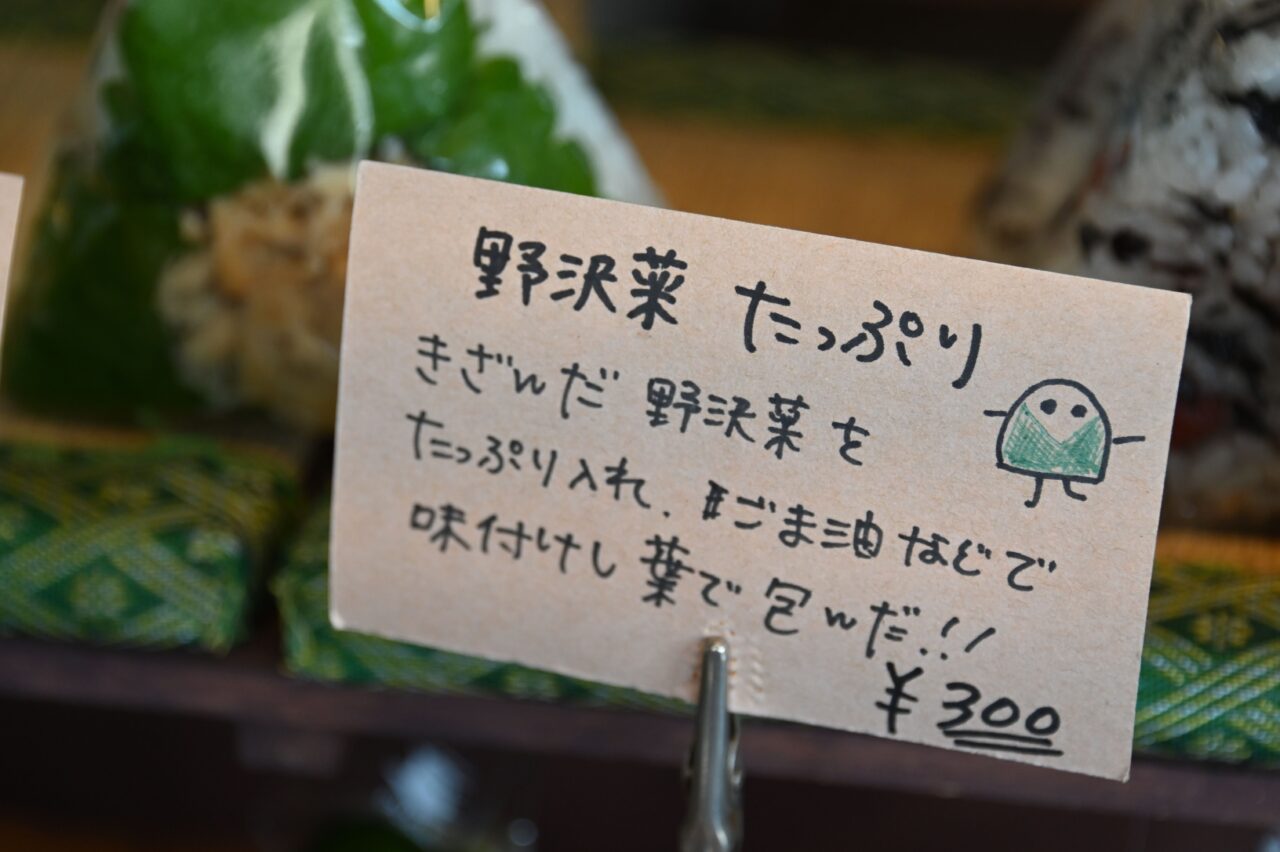 野沢菜 たっぷり
きざんだ 野沢菜を
たっぷり入れ、ごま油などで
味付けし葉で包んだ!!
¥300